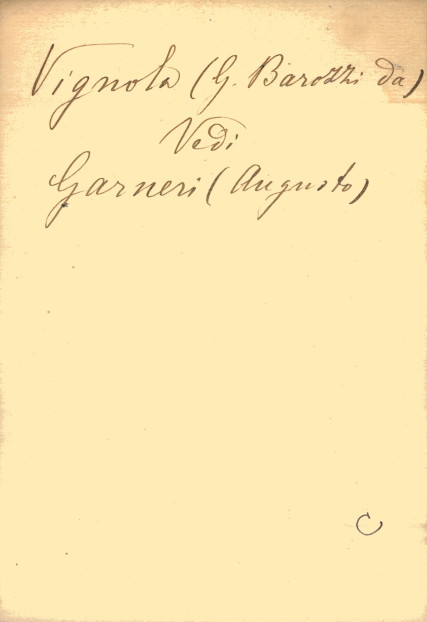 Vignola (G. Barozzi da)
Vedi
Garneri (Augusto)
C